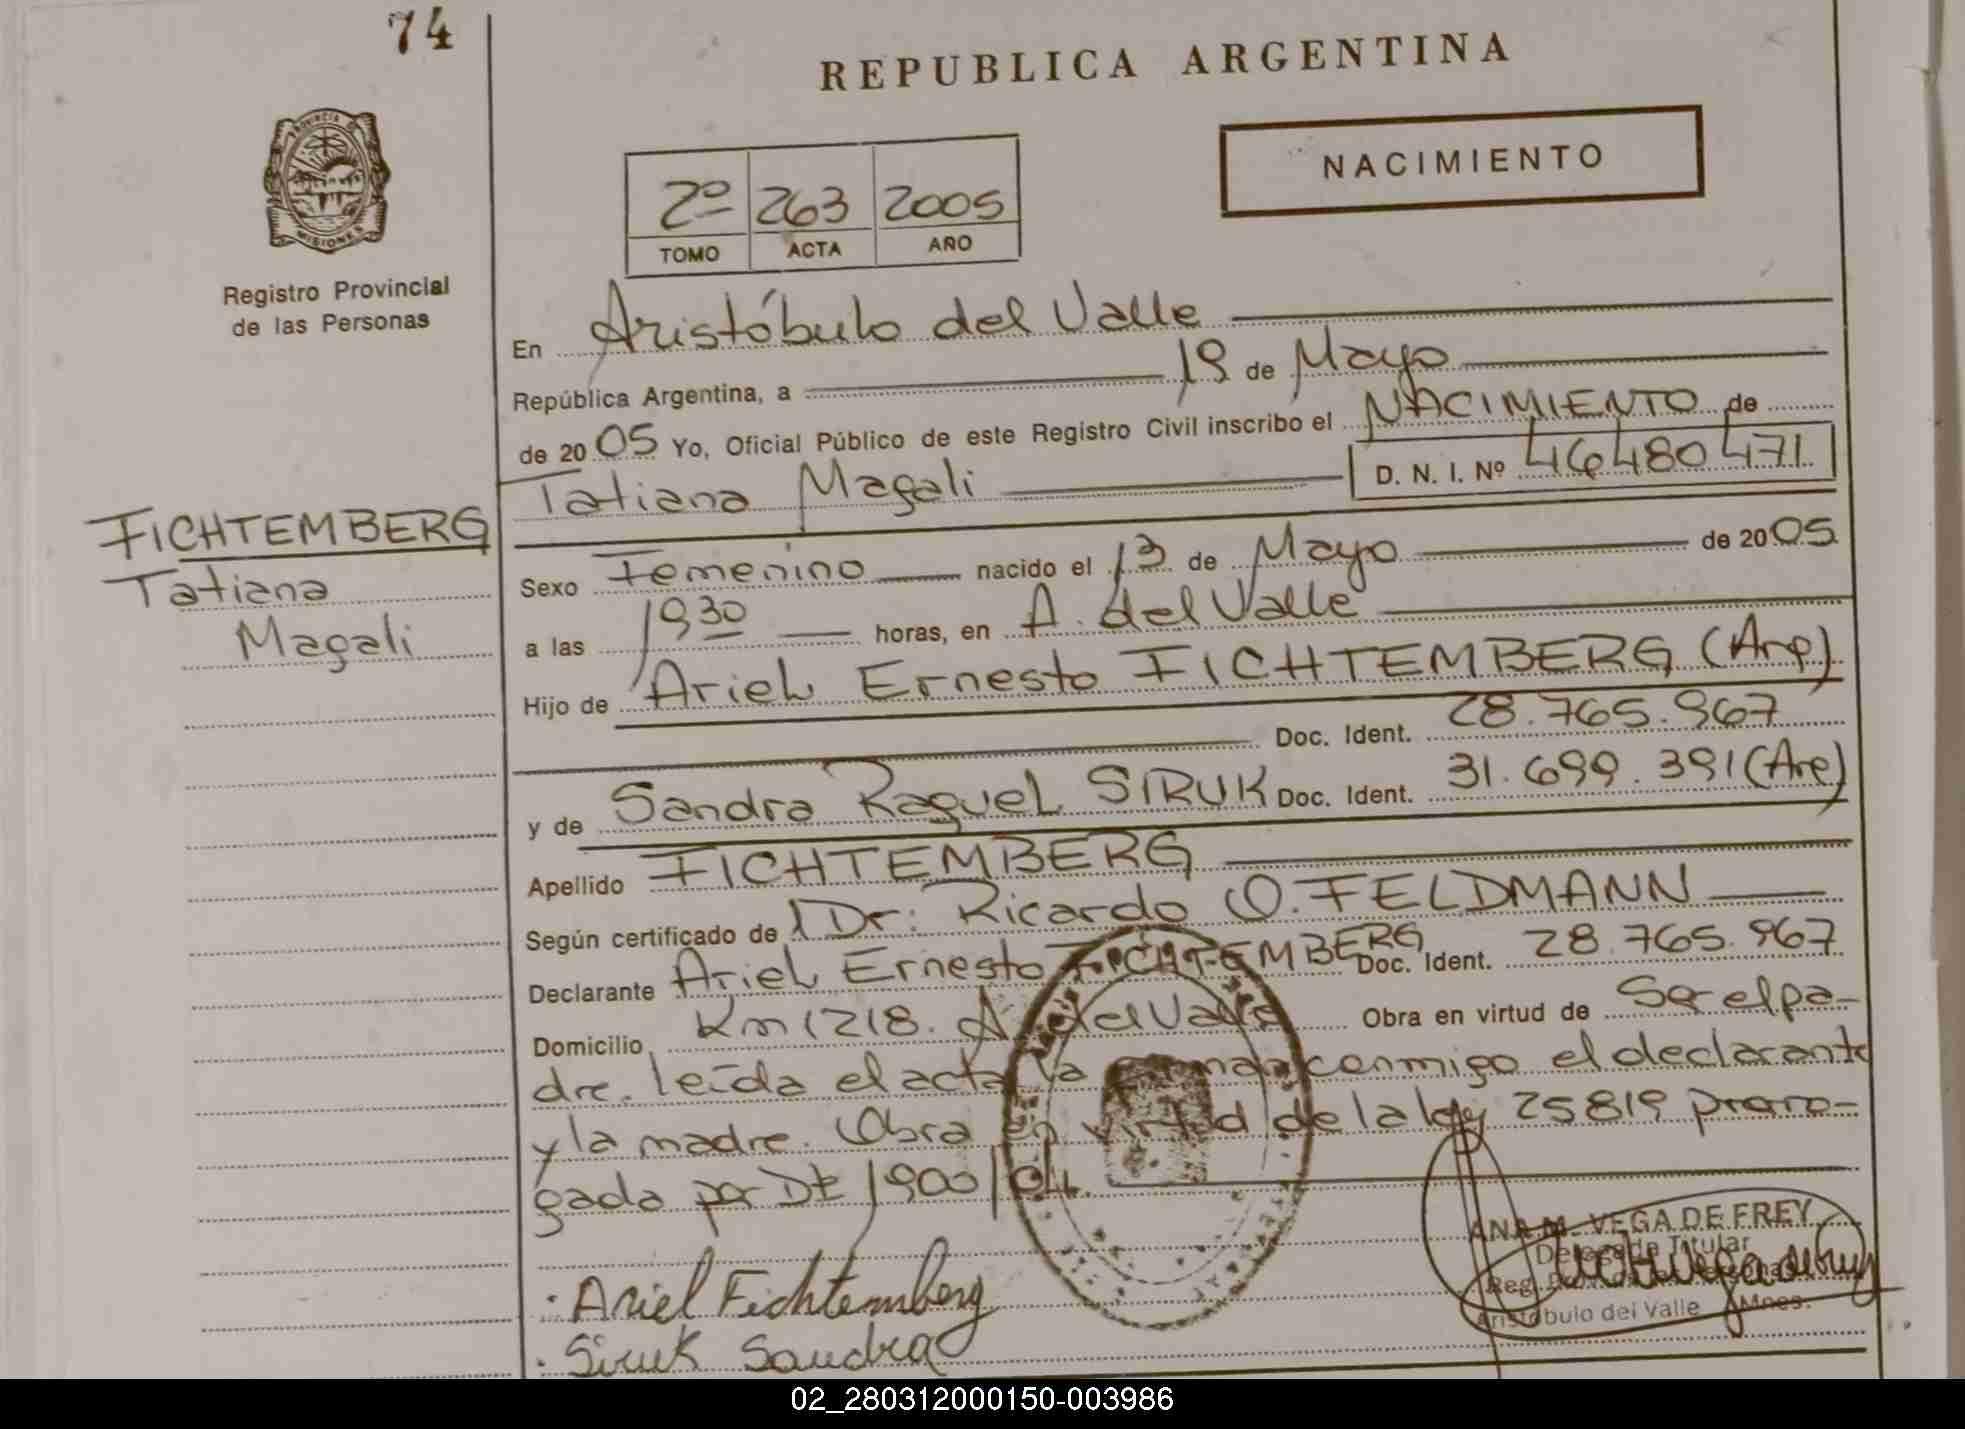 74
REPUBLICA ARGENTINA
NACIMIENTO
PROVINCIA DE
MISIONES
Registro Provincial
de las Personas
2º 263 2005
TOMO ACTA AÑO
En Aristóbulo del Valle
República Argentina, a 19 de Mayo
de 2005 Yo, Oficial Público de este Registro Civil inscribo el NACIMIENTO de
Tatiana Magali D. N. I. Nº 46480471
FICHTEMBERG
Tatiana
Magali
Sexo Femenino nacido el 13 de Mayo de 2005
a las 1930 horas, en A. del Valle
Hijo de Ariel Ernesto FICHTEMBERG (Arg)
Doc. Ident. 28.765.967
y de Sandra Raquel SIRUK Doc. Ident. 31.699.391 (Arg)
Apellido FICHTEMBERG
Según certificado de Dr: Ricardo O. FELDMANN
Declarante Ariel Ernesto FICHTEMBERG Doc. Ident. 28.765.967
Domicilio Km 1218. A. del Valle Obra en virtud de Ser el pa-
dre. leída el acta la firman conmigo el declarante
y la madre. Obra en virtud de la ley 25819 prorro-
gada por Dto 1900/04.
ANA M. VEGA DE FREY
Delegada Titular
Reg.
Aristóbulo del Valle Mnes.
Ariel Fichtemberg
Siruk Sandra
02_280312000150-003986